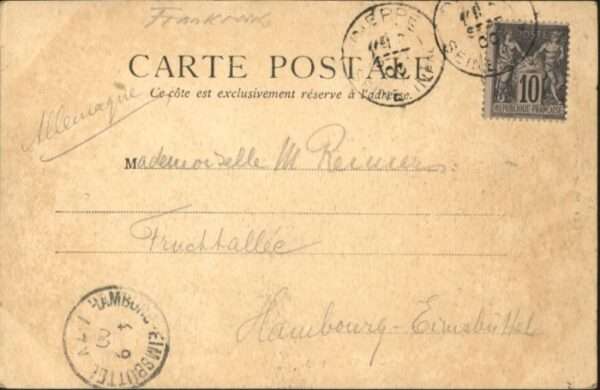 Frankreich
DIEPPE
SEINE
CARTE POSTALE
POSTE
10
REPUBLIQUE FRANÇAISE
Ce côté est exclusivement réservé à l'adresse.
Allemagne
Mademoiselle M Reimers.
Fruchtallée
Hambourg-Eimsbüttel
HAMBURG-EIMSBÜTTEL